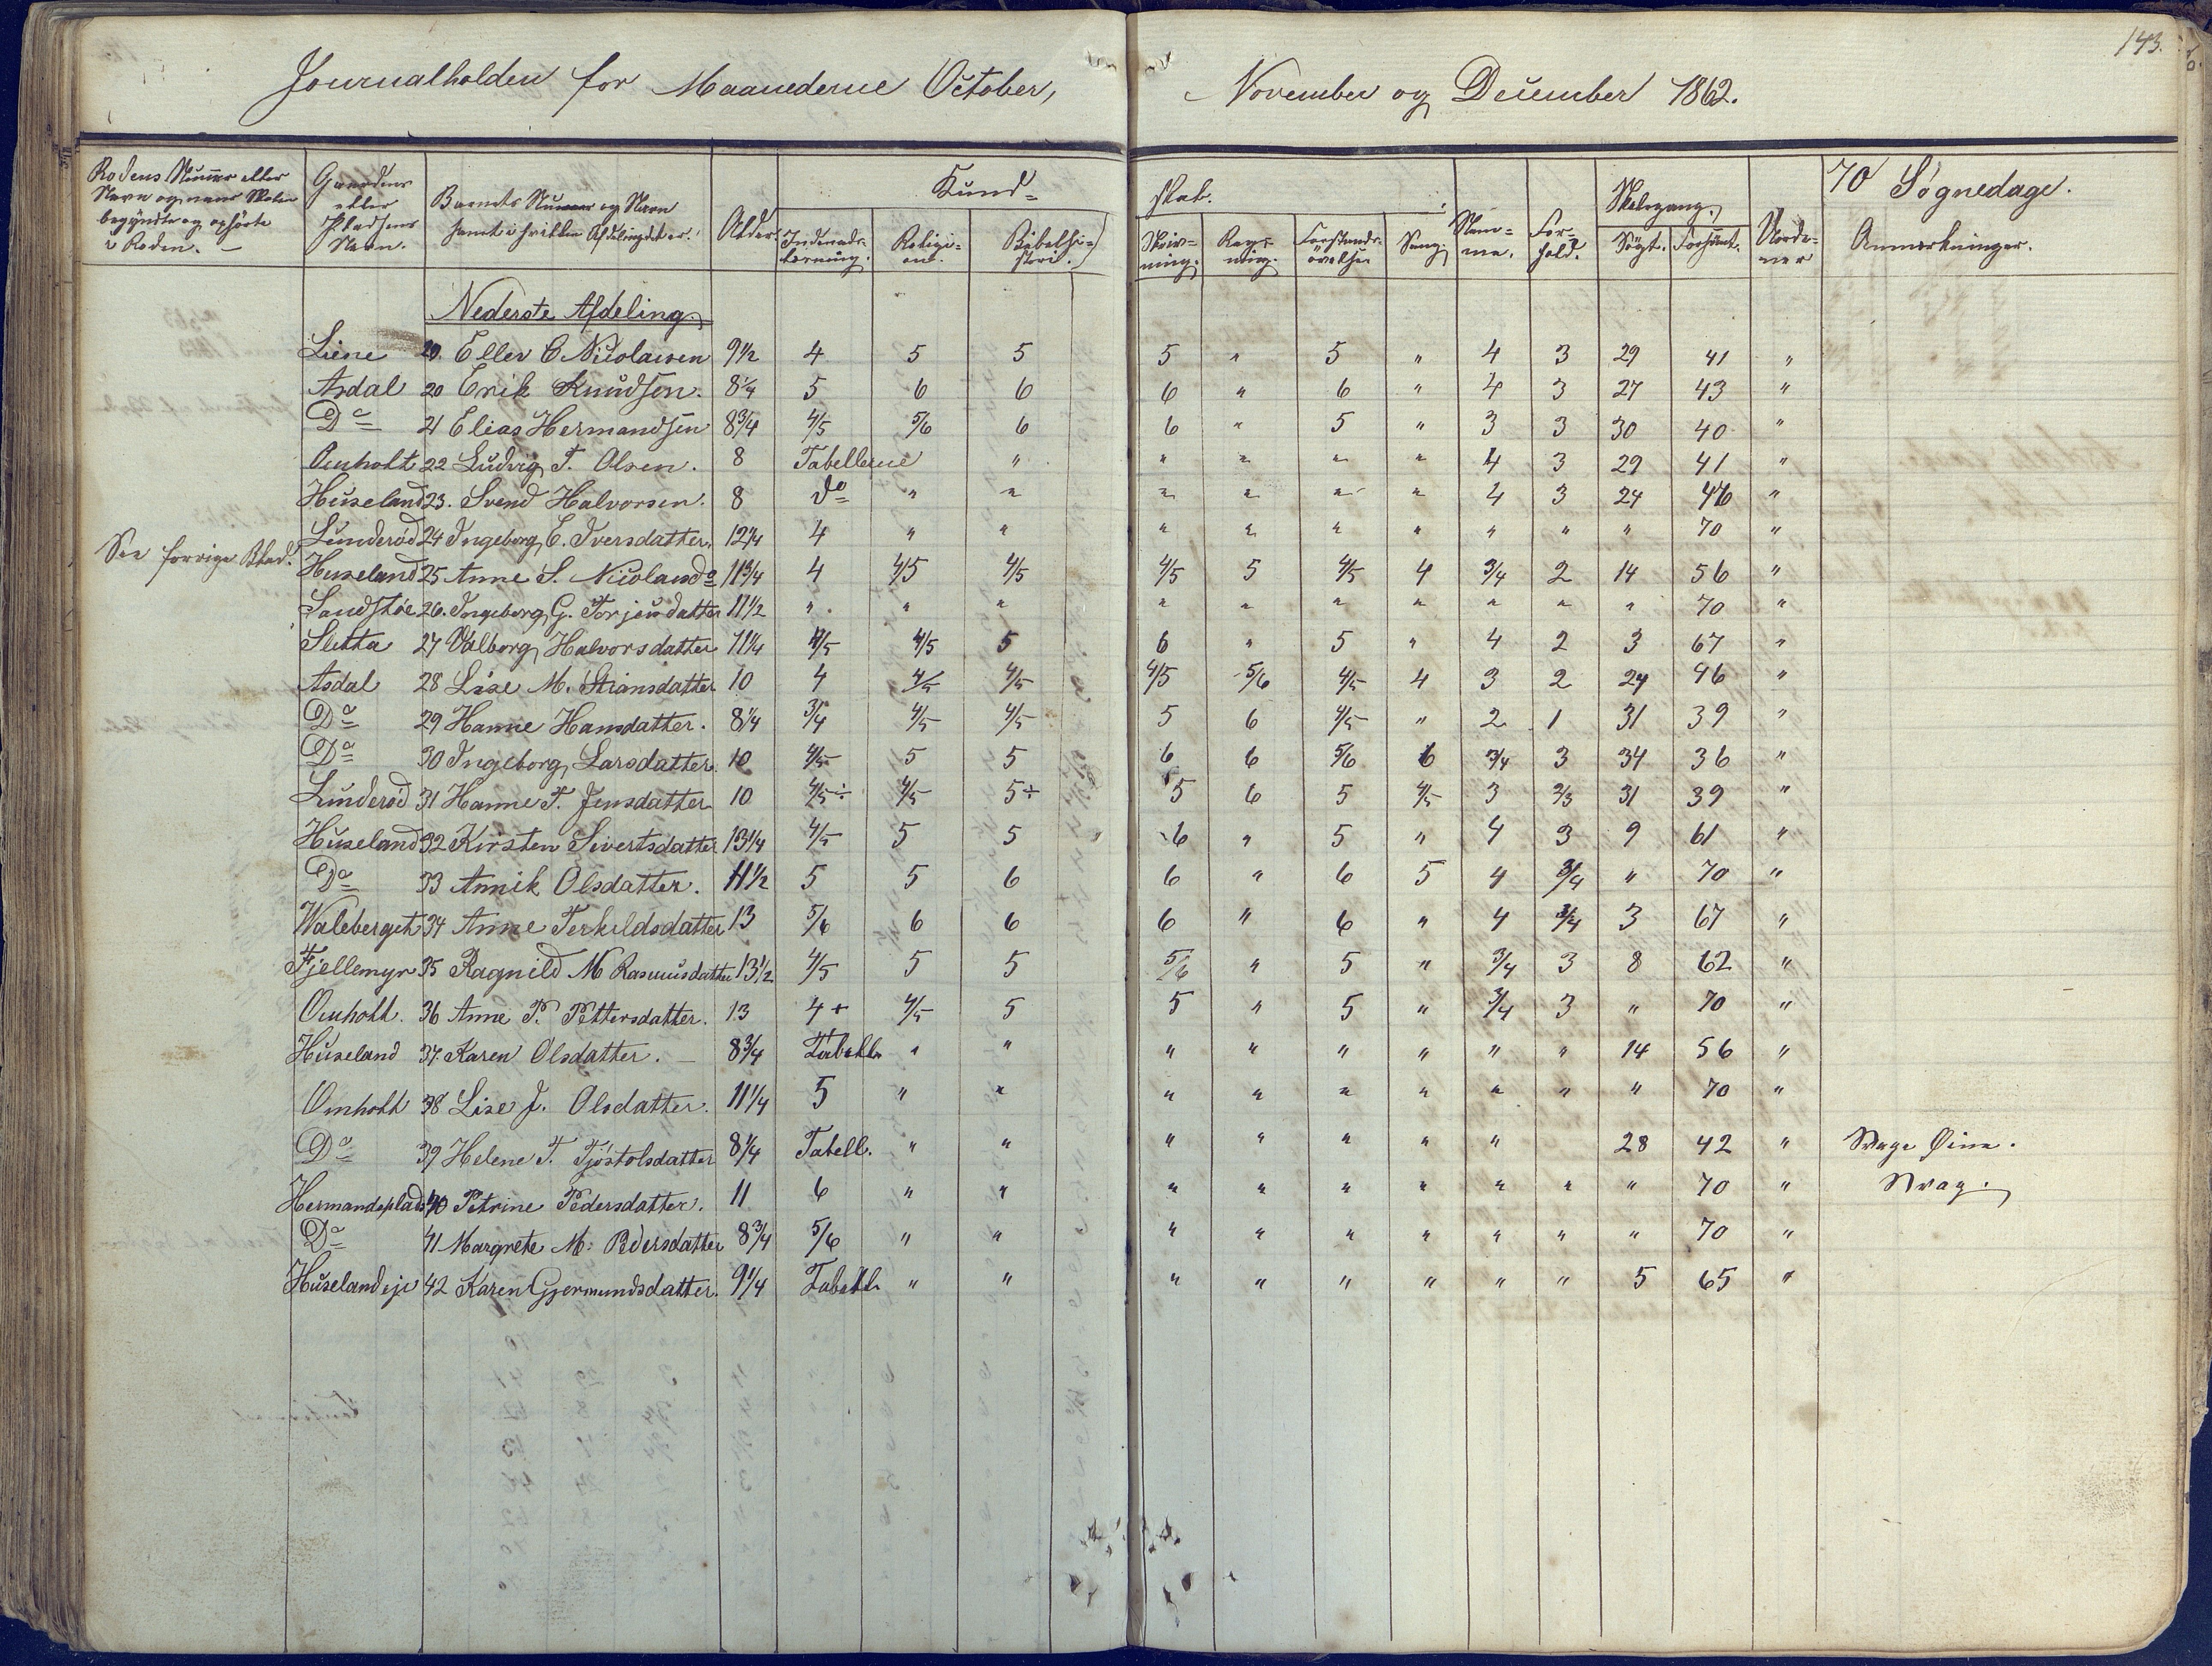 143.
Journalholden for Maanederne October, November og December 1862.
Rodens Nummer eller Navn og naar Skolen begyndte og ophörte i Roden. —
Gaardens eller Pladsens Navn.
Barnets Nummer og Navn samt i hvilken Afdeling det er.
Alder.
Kund-skab.
Indenads-læsning.
Religi-on.
Bibelhi-storie.
Skriv-ning.
Regning.
Forstands-øvelse
Sang.
Nem-me.
For-hold.
Skolegang.
Sögt. Forsömt.
70 Søgnedage.
Anmerkninger.
Nederste Afdeling
See forrige Blad.
Liene 20. Eller C Nicolaisen 9 1/2 4 5 5 5 " 5 " 4 3 29 41 "
Asdal 20 Erik Knudsen. 8 1/4 5 6 6 6 " 6 " 4 3 27 43 "
Do 21 Elias Hermandsen 8 3/4 4/5 5/6 6 6 " 5 " 3 3 30 40 "
Omholt 22 Ludvig T. Olsen. 8 Tabellerne " " " " " 4 3 29 41 "
Huseland 23. Svend Halvorsen. 8 do " " " " " " 4 3 24 46 "
Lunderød 24 Ingeborg E. Iversdatter. 12 1/4 4 " " " " " " " " " 70 "
Huseland 25 Anne S. Nicolaisd 11 3/4 4 4/5 4/5 4/5 5 4/5 4 3/4 2 14 56 "
Sandstøe 26. Ingeborg G. Torjeusdatter 11 1/2 " " " " " " " " " " 70 "
Sletta 27 Valborg Halvorsdatter 11 1/4 4/5 4/5 5 6 " 5 " 4 2 3 67 "
Asdal 28 Lise M. Stiansdatter 10 4 4/5 4/5 4/5 5/6 4/5 4 3 2 24 46 "
Do 29 Hanne Hansdatter. 8 1/4 3/4 4/5 4/5 5 6 4/5 " 2 1 31 39 "
Do 30 Ingeborg Larsdatter. 10 4/5 5 5 6 6 5/6 6 3/4 3 34 36 "
Lunderød 31 Hanne T. Jensdatter 10 4/5÷ 4/5 5÷ 5 6 5 4/5 3 2/3 31 39 "
Huseland 32 Kirsten Sivertsdatter 13 1/4 4/5 5 5 6 " 5 " 4 3 9 61 "
Do 33 Annik Olsdatter. 11 1/2 5 5 6 6 " 6 5 4 3/4 " 70 "
Waleberget 34 Anne Terkildsdatter 13 5/6 6 6 6 " 6 " 4 3/4 3 67 "
Fjellemyr 35 Ragnild M Rasmusdatter 13 1/2 4/5 5 5 5/6 " 5 " 3/4 3 8 62 "
Omholt. 36 Anne P. Pettersdatter. 13 4+ 4/5 5 5 " 5 " 3/4 3 " 70 "
Huseland 37. Karen Olsdatter. — 8 3/4 Tabell. " " " " " " " " 14 56 "
Omholt 38 Lise J. Olsdatter. 11 1/4 5 " " " " " " " " " 70 "
Do 39 Helene T. Tjöstolsdatter 8 1/4 Tabell. " " " " " " " 28 42 " Svage Øine.
Hermandsplads 40 Petrine Pedersdatter. 11 6 " " " " " " " " " 70 " Svag.
Do 41 Margrete M. Pedersdatter 8 3/4 5/6 " " " " " " " " " 70 "
Huselandeje 42 Karen Gjermundsdatter. 9 1/4 Tabell. " " " " " " " " 5 65 "